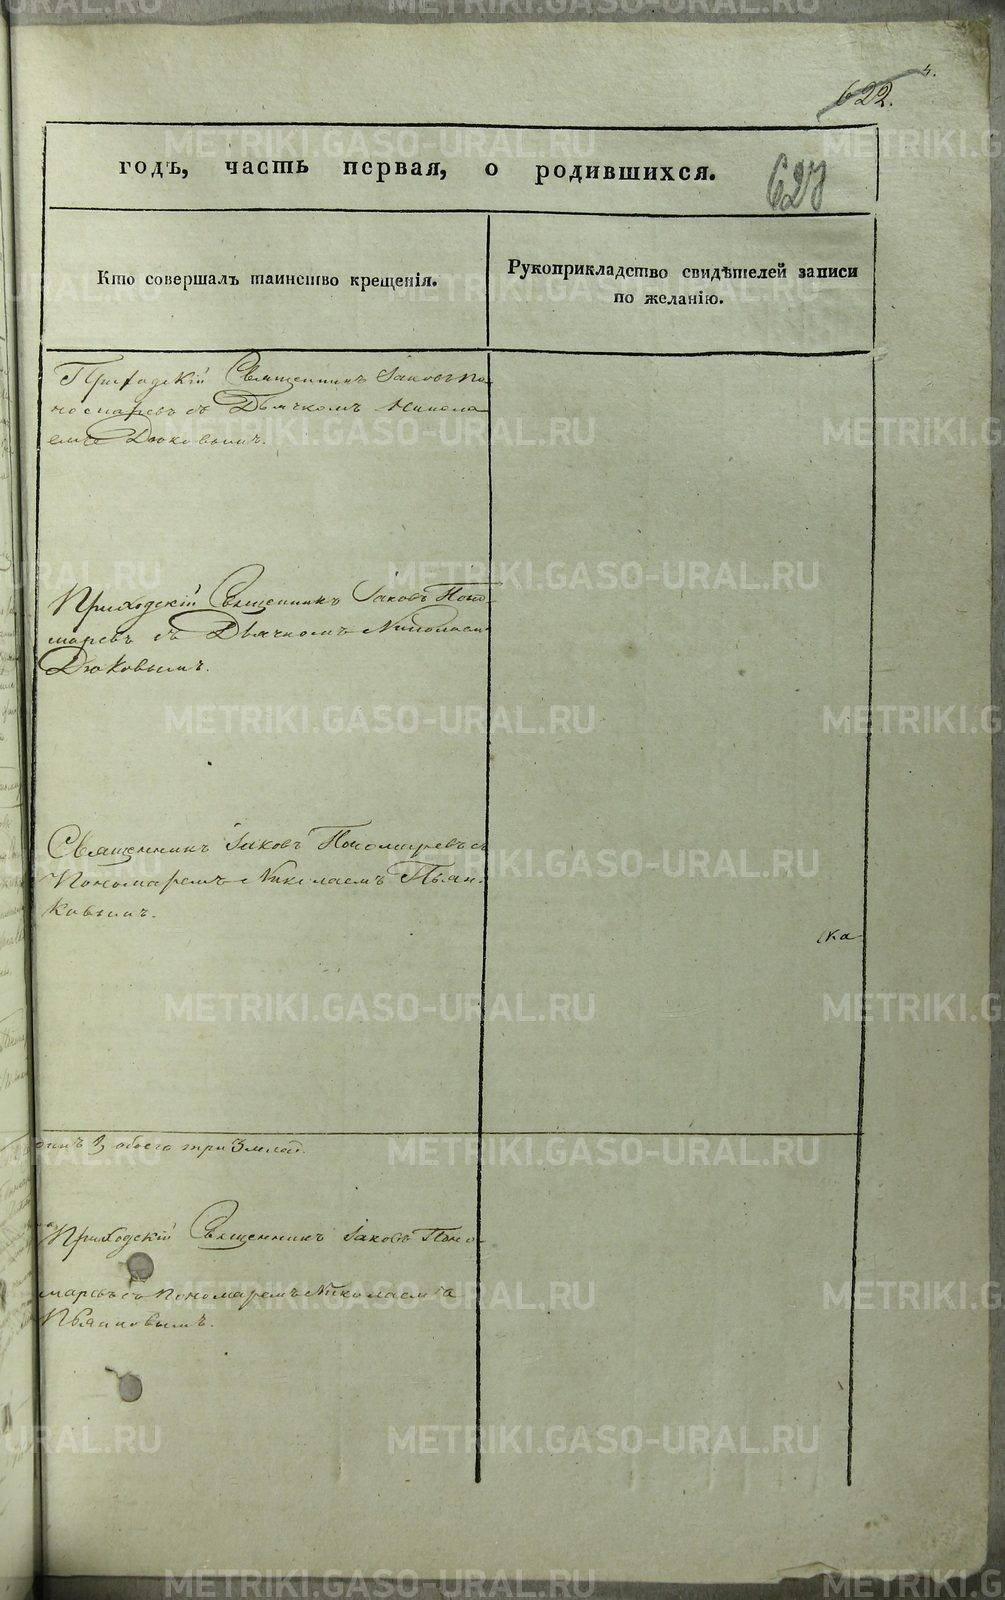 4.
622.
годъ, часть первая, о родившихся.
627
Кто совершалъ таинство крещенія.
Рукоприкладство свидѣтелей записи
по желанію.
Приходскій Священникъ Іаковъ По-
номаревъ съ Дьячкомъ Никола
емъ Дюковымъ.
Приходскій Священникъ Іаковъ Поно-
маревъ съ Дьячкомъ Николаемъ
Дюковымъ.
Священникъ Іаковъ Пономаревъ съ
Пономаремъ Николаемъ Пьян-
ковымъ.
обоего три 3
Приходскій Священникъ Іаковъ Поно-
маревъ съ Пономаремъ Николаемъ
Пьянковымъ.
METRIKI.GASO-URAL.RU